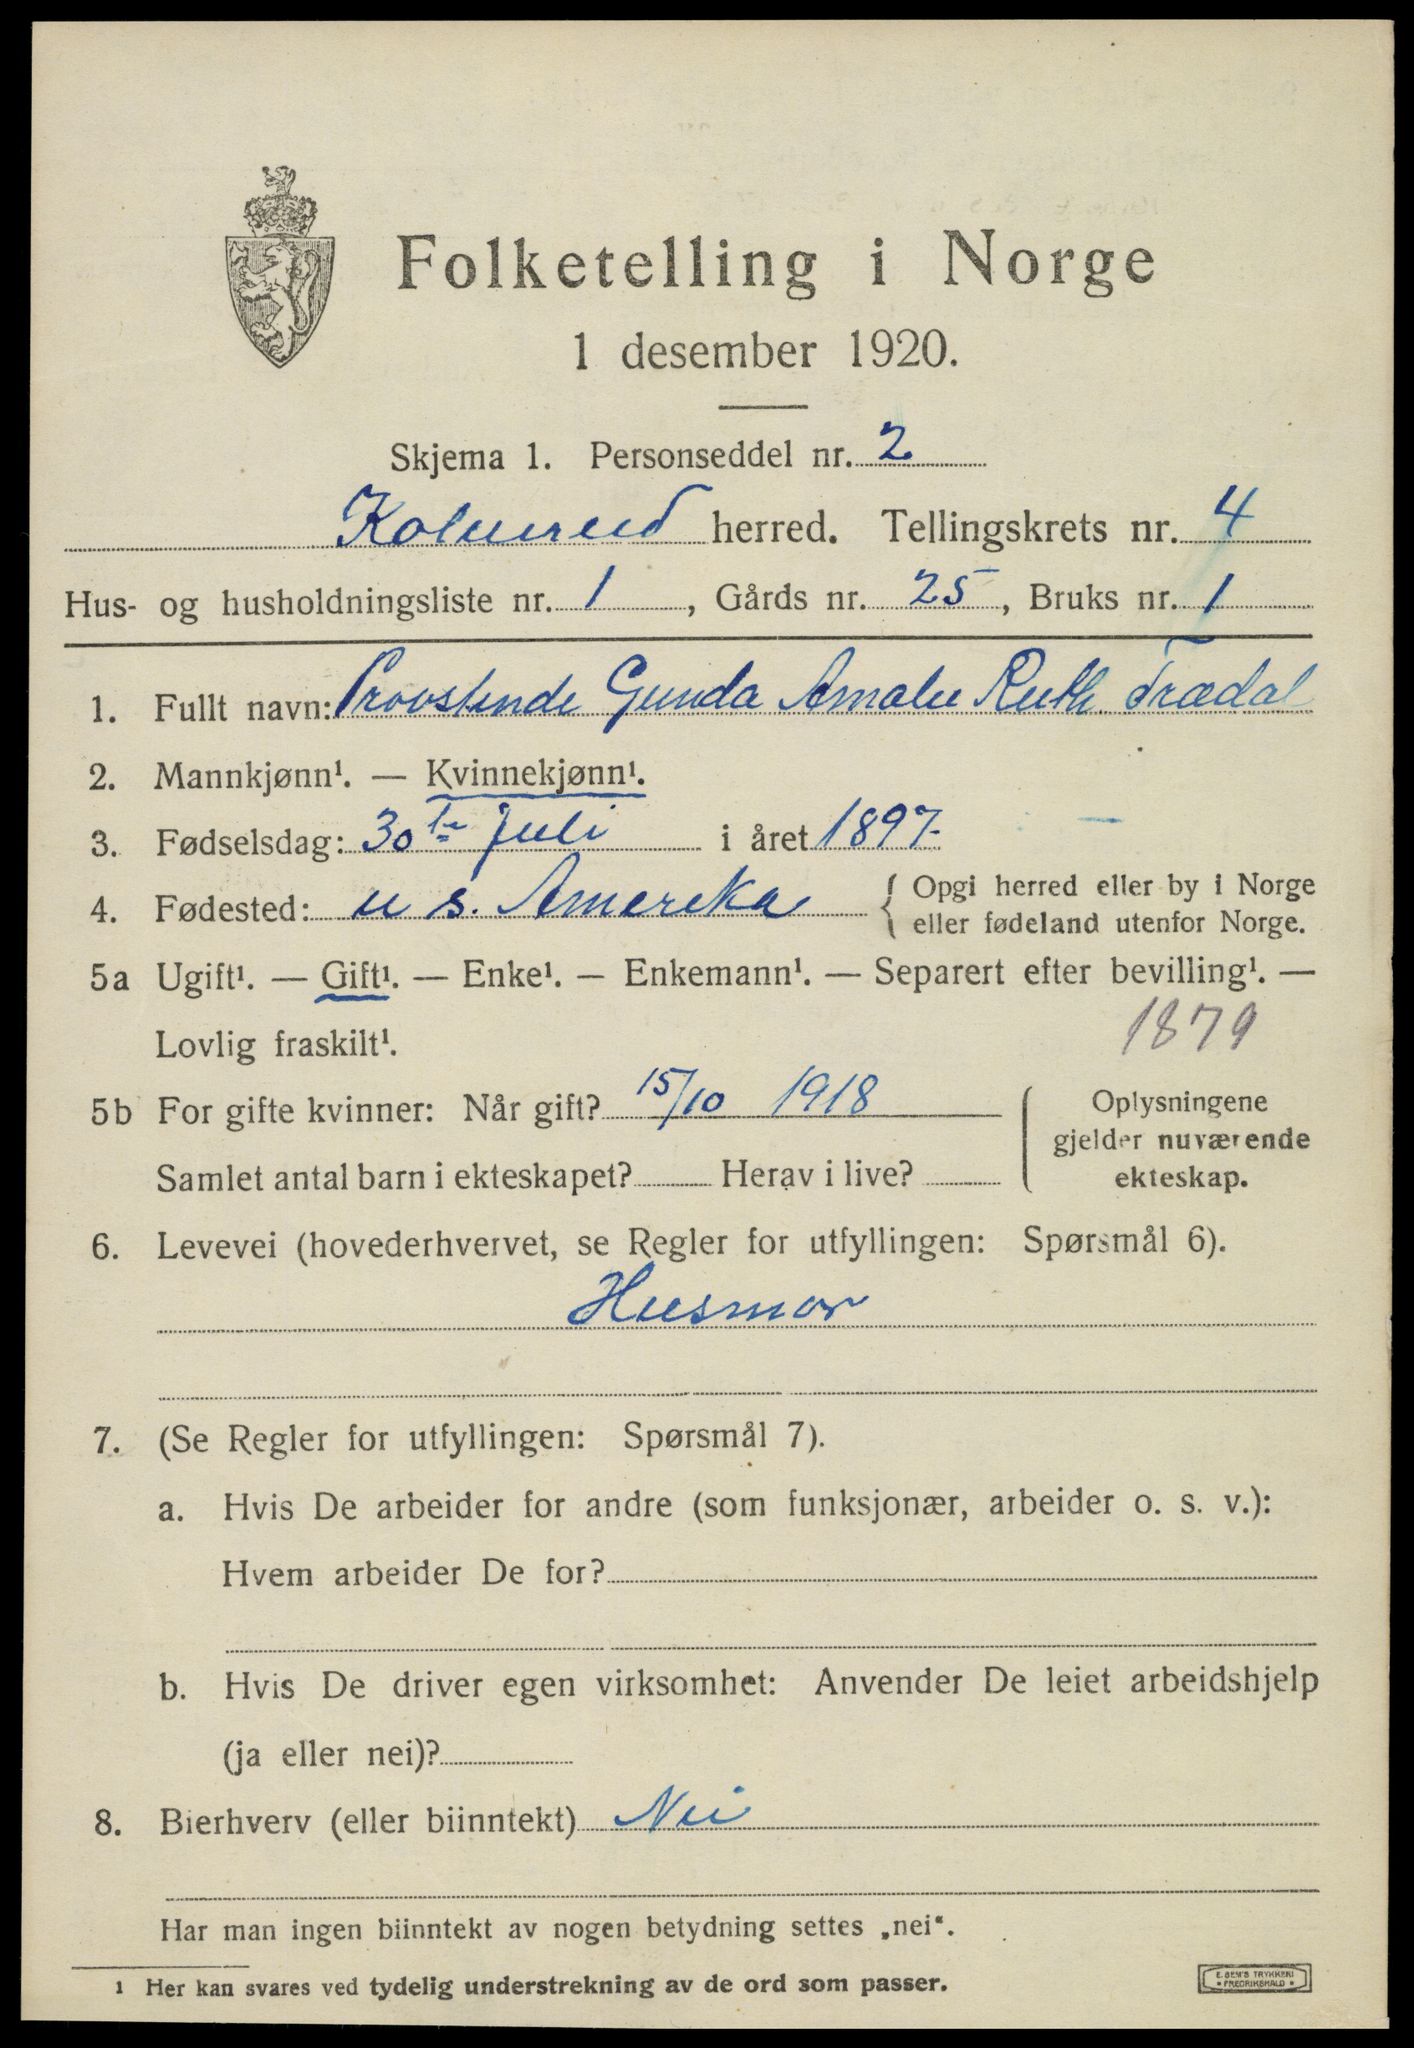 Folketelling i Norge
1 desember 1920.
Skjema 1. Personseddel nr. 2
Kolvereid herred. Tellingskrets nr. 4
Hus- og husholdningsliste nr. 1, Gårds nr. 25, Bruks nr. 1
1. Fullt navn: Provstinde Gunda Amalie Ruth Trædal
2. Mannkjønn¹. — Kvinnekjønn¹.
3. Fødselsdag: 30te juli i året 1897.
4. Fødested: U S. Amerika { Opgi herred eller by i Norge
eller fødeland utenfor Norge.
5a Ugift¹. — Gift¹. — Enke¹. — Enkemann¹. — Separert efter bevilling¹. —
Lovlig fraskilt¹. 1879
5b For gifte kvinner: Når gift? 15/10 1918
Samlet antal barn i ekteskapet? Herav i live?
Oplysningene
gjelder nuværende
ekteskap.
6. Levevei (hovederhvervet, se Regler for utfyllingen: Spørsmål 6).
Husmor
7. (Se Regler for utfyllingen: Spørsmål 7).
a. Hvis De arbeider for andre (som funksjonær, arbeider o. s. v.):
Hvem arbeider De for?
b. Hvis De driver egen virksomhet: Anvender De leiet arbeidshjelp
(ja eller nei)?
8. Bierhverv (eller biinntekt) Nei
Har man ingen biinntekt av nogen betydning settes „nei“.
1 Her kan svares ved tydelig understrekning av de ord som passer.
E. SEM'S TRYKKERI
• FREDRIKSHALD •